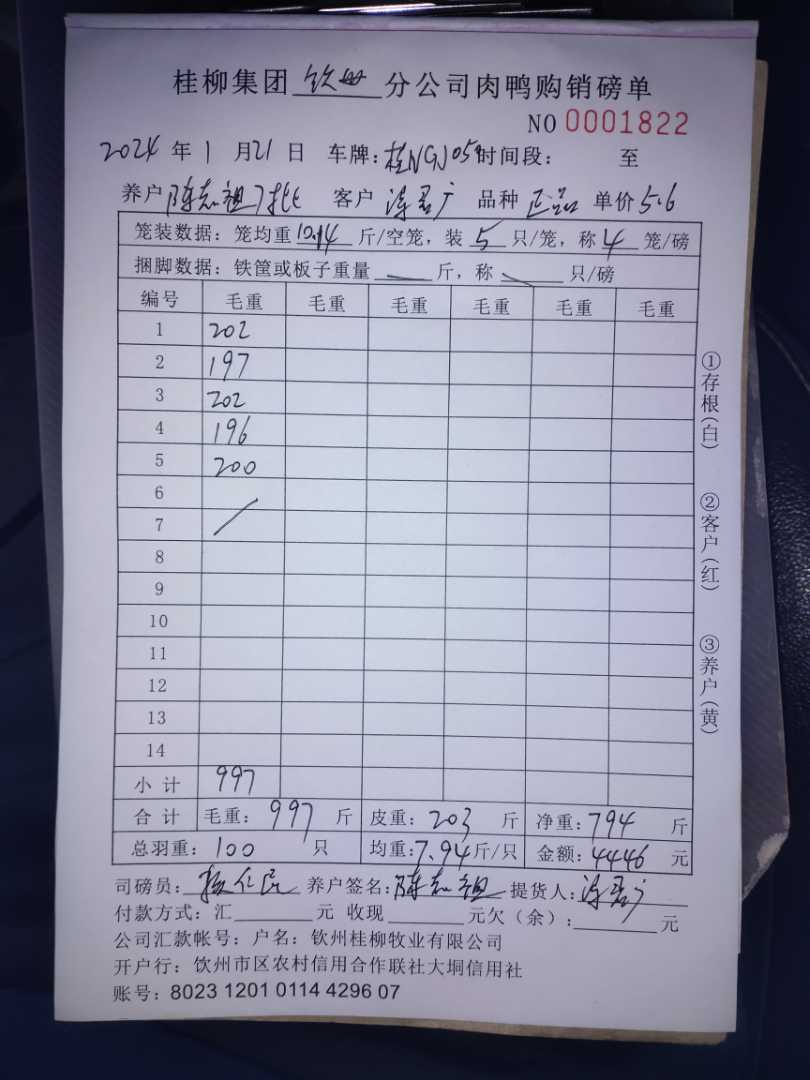 桂柳集团 钦州 分公司肉鸭购销磅单
NO 0001822
2024 年 1 月 21 日 车牌: 桂NGJ05 时间段: 至
养户 陈志祖 客户 涛君广 品种 正品 单价 5.6
笼装数据: 笼均重 10.14 斤/空笼, 装 5 只/笼, 称 4 笼/磅
捆脚数据: 铁筐或板子重量 — 斤, 称 只/磅
编号 毛重 毛重 毛重 毛重 毛重 毛重
1 202
2 197
3 202
4 196
5 200
6
7
8
9
10
11
12
13
14
小计 997
合计 毛重: 997 斤 皮重: 203 斤 净重: 794 斤
总羽重: 100 只 均重: 7.94 斤/只 金额: 4446 元
司磅员: 养户签名: 陈志祖 提货人: 涛君广
付款方式: 汇 元 收现 元欠（余）: 元
公司汇款帐号: 户名: 钦州桂柳牧业有限公司
开户行: 饮州市区农村信用合作联社大垌信用社
账号: 8023 1201 0114 4296 07
①存根(白)
②客户(红)
③养户(黄)